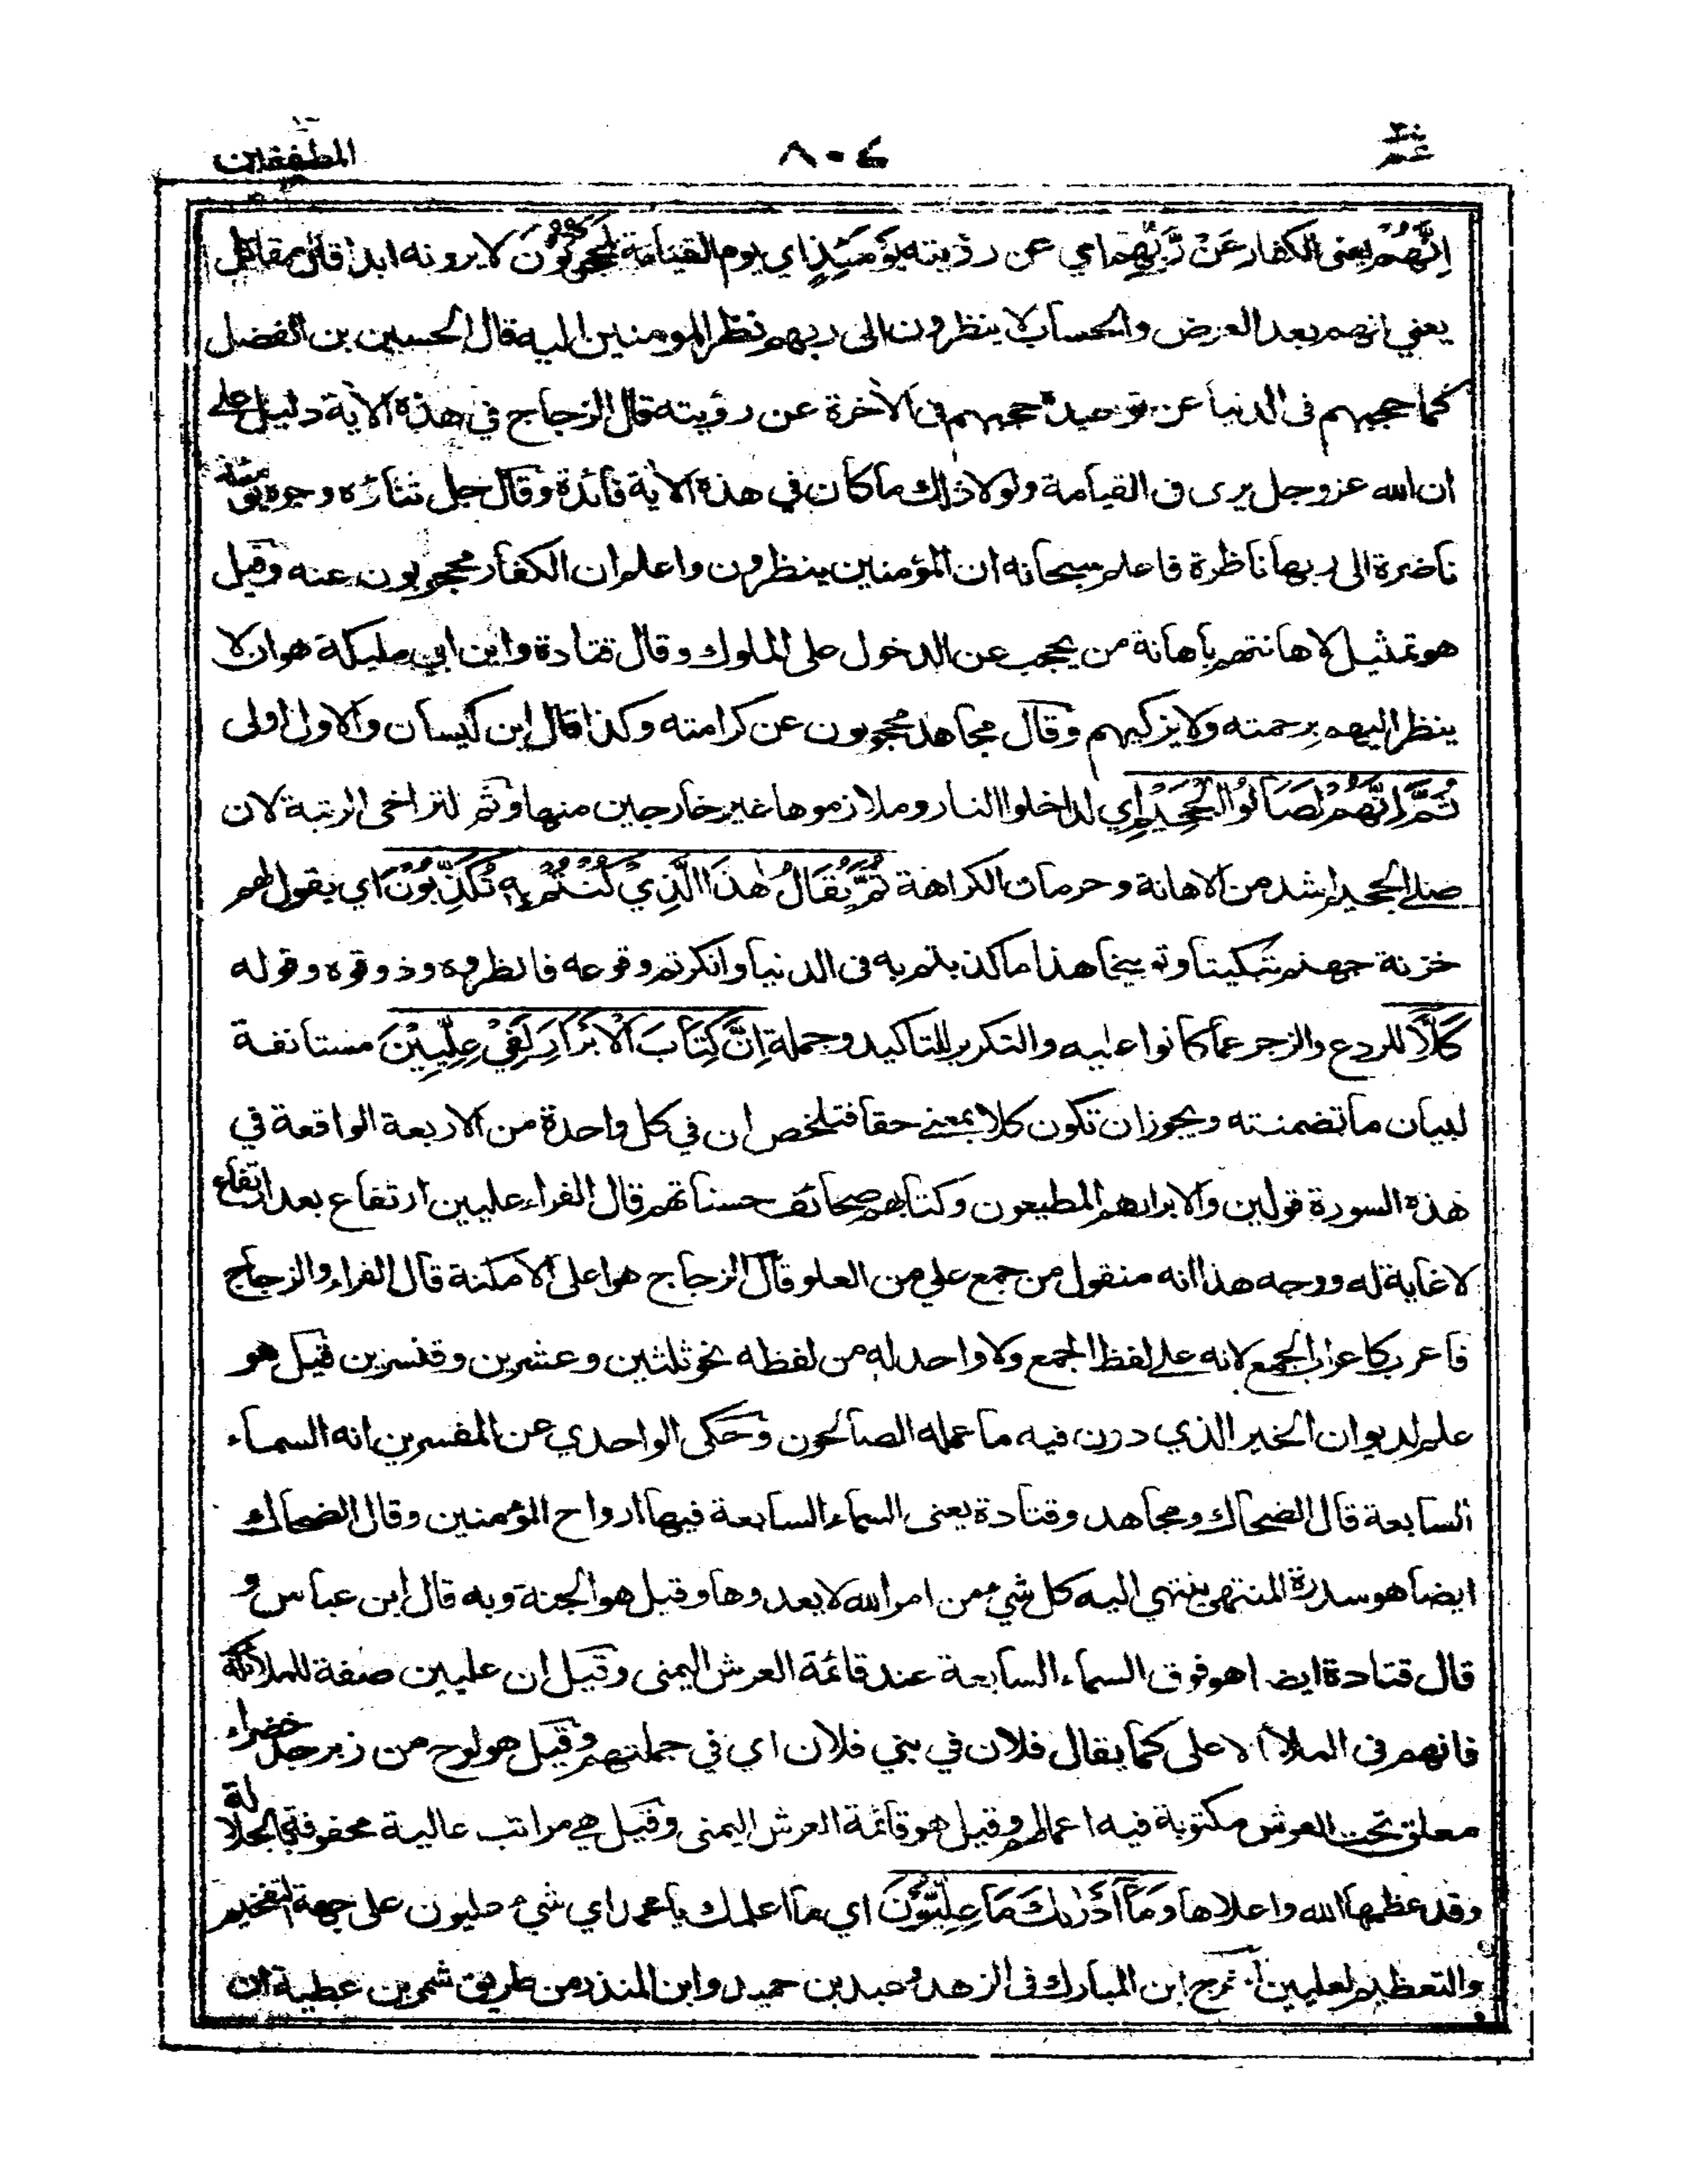 عم ٣٠
٨٠٤
المطففين
اِنَّهُمْ يعني الكفار عَنْ رَّبِّهِمْ اي عن رؤيته يَوْمَئِذٍ اي يوم القيامة لَّمَحْجُوْبُوْنَ لا يرونه ابدا قال مقاتل
يعني انهم بعد العرض والحساب لا ينظرون الى ربهم نظر المومنين اليه قال الحسين بن الفضل
كما حجبهم فى الدنيا عن توحيده حجبهم فى الاخرة عن رؤيته قال الزجاج في هذه الاية دليل على
ان الله عز وجل يرى في القيامة ولولا ذلك ما كان في هذه الاية فائدة وقال جل ثناؤه وجوه يومئذ
ناضرة الى ربها ناظرة فاعلم سبحانه ان المؤمنين ينظرون واعلم ان الكفار محجوبون عنه وقيل
هو تمثيل لاهانتهم باهانة من يحجب عن الدخول على الملوك وقال قتادة وابن ابي مليكة هو ان لا
ينظر اليهم برحمته ولا يزكيهم وقال مجاهد محجوبون عن كرامته وكذا قال ابن كيسان والاول اولى
ثُمَّ اِنَّهُمْ لَصَالُوا الْجَحِيْمِ اي لداخلوا النار وملازموها غير خارجين منها وثم لتراخى الرتبة لان
صلي الجحيم اشد من الاهانة وحرمان الكراهة ثُمَّ يُقَالُ هٰذَا الَّذِيْ كُنْتُمْ بِهٖ تُكَذِّبُوْنَ اي يقول لهم
خزنة جهنم تبكيتا وتوبيخا هذا ما كذبتم به فى الدنيا وانكرتم وقوعه فانظروه وذوقوه وقوله
كَلَّا للردع والزجر عما كانوا عليه والتكرير للتاكيد وجملة اِنَّ كِتَابَ الْاَبْرَارِ لَفِيْ عِلِّيِّيْنَ مستانفة
لبيان ما تضمنته ويجوز ان تكون كلا بمعنى حقا فتلخص ان في كل واحدة من الاربعة الواقعة في
هذه السورة قولين والابرار هم المطيعون وكتابهم صحائف حسناتهم قال الفراء عليين ارتفاع بعد ارتفاع
لا غاية له ووجه هذا انه منقول من جمع علي من العلو قال الزجاج هو اعلى الامكنة قال الفراء والزجاج
فاعرب كاعراب الجمع لانه على لفظ الجمع ولا واحد له من لفظه نحو ثلثين وعشرين وقنسرين قيل هو
علم لديوان الخير الذي دون فيه ما عمله الصالحون وحكى الواحدي عن المفسرين انه السماء
السابعة قال الضحاك ومجاهد وقتادة يعنى السماء السابعة فيها ارواح المؤمنين وقال الضحاك
ايضا هو سدرة المنتهى ينتهي اليه كل شيء من امر الله لا يعدوها وقيل هو الجنة وبه قال ابن عباس و
قال قتادة ايضا هو فوق السماء السابعة عند قائمة العرش اليمنى وقيل ان عليين صفة للملائكة
فانهم فى الملأ الاعلى كما يقال فلان في بني فلان اي في جملتهم وقيل هو لوح من زبرجد خضراء
معلق تحت العرش مكتوبة فيه اعمالهم وقيل هو قائمة العرش اليمنى وقيل هي مراتب عالية محفوفة بالجلالة
وقد عظمها الله واعلاها وَمَآ اَدْرٰىكَ مَا عِلِّيُّوْنَ اي ما اعلمك يا محمد اي شيء عليون على جهة التفخيم
والتعظيم لعليين اخرج ابن المبارك فى الزهد وعبد بن حميد وابن المنذر من طريق شمر بن عطية ان